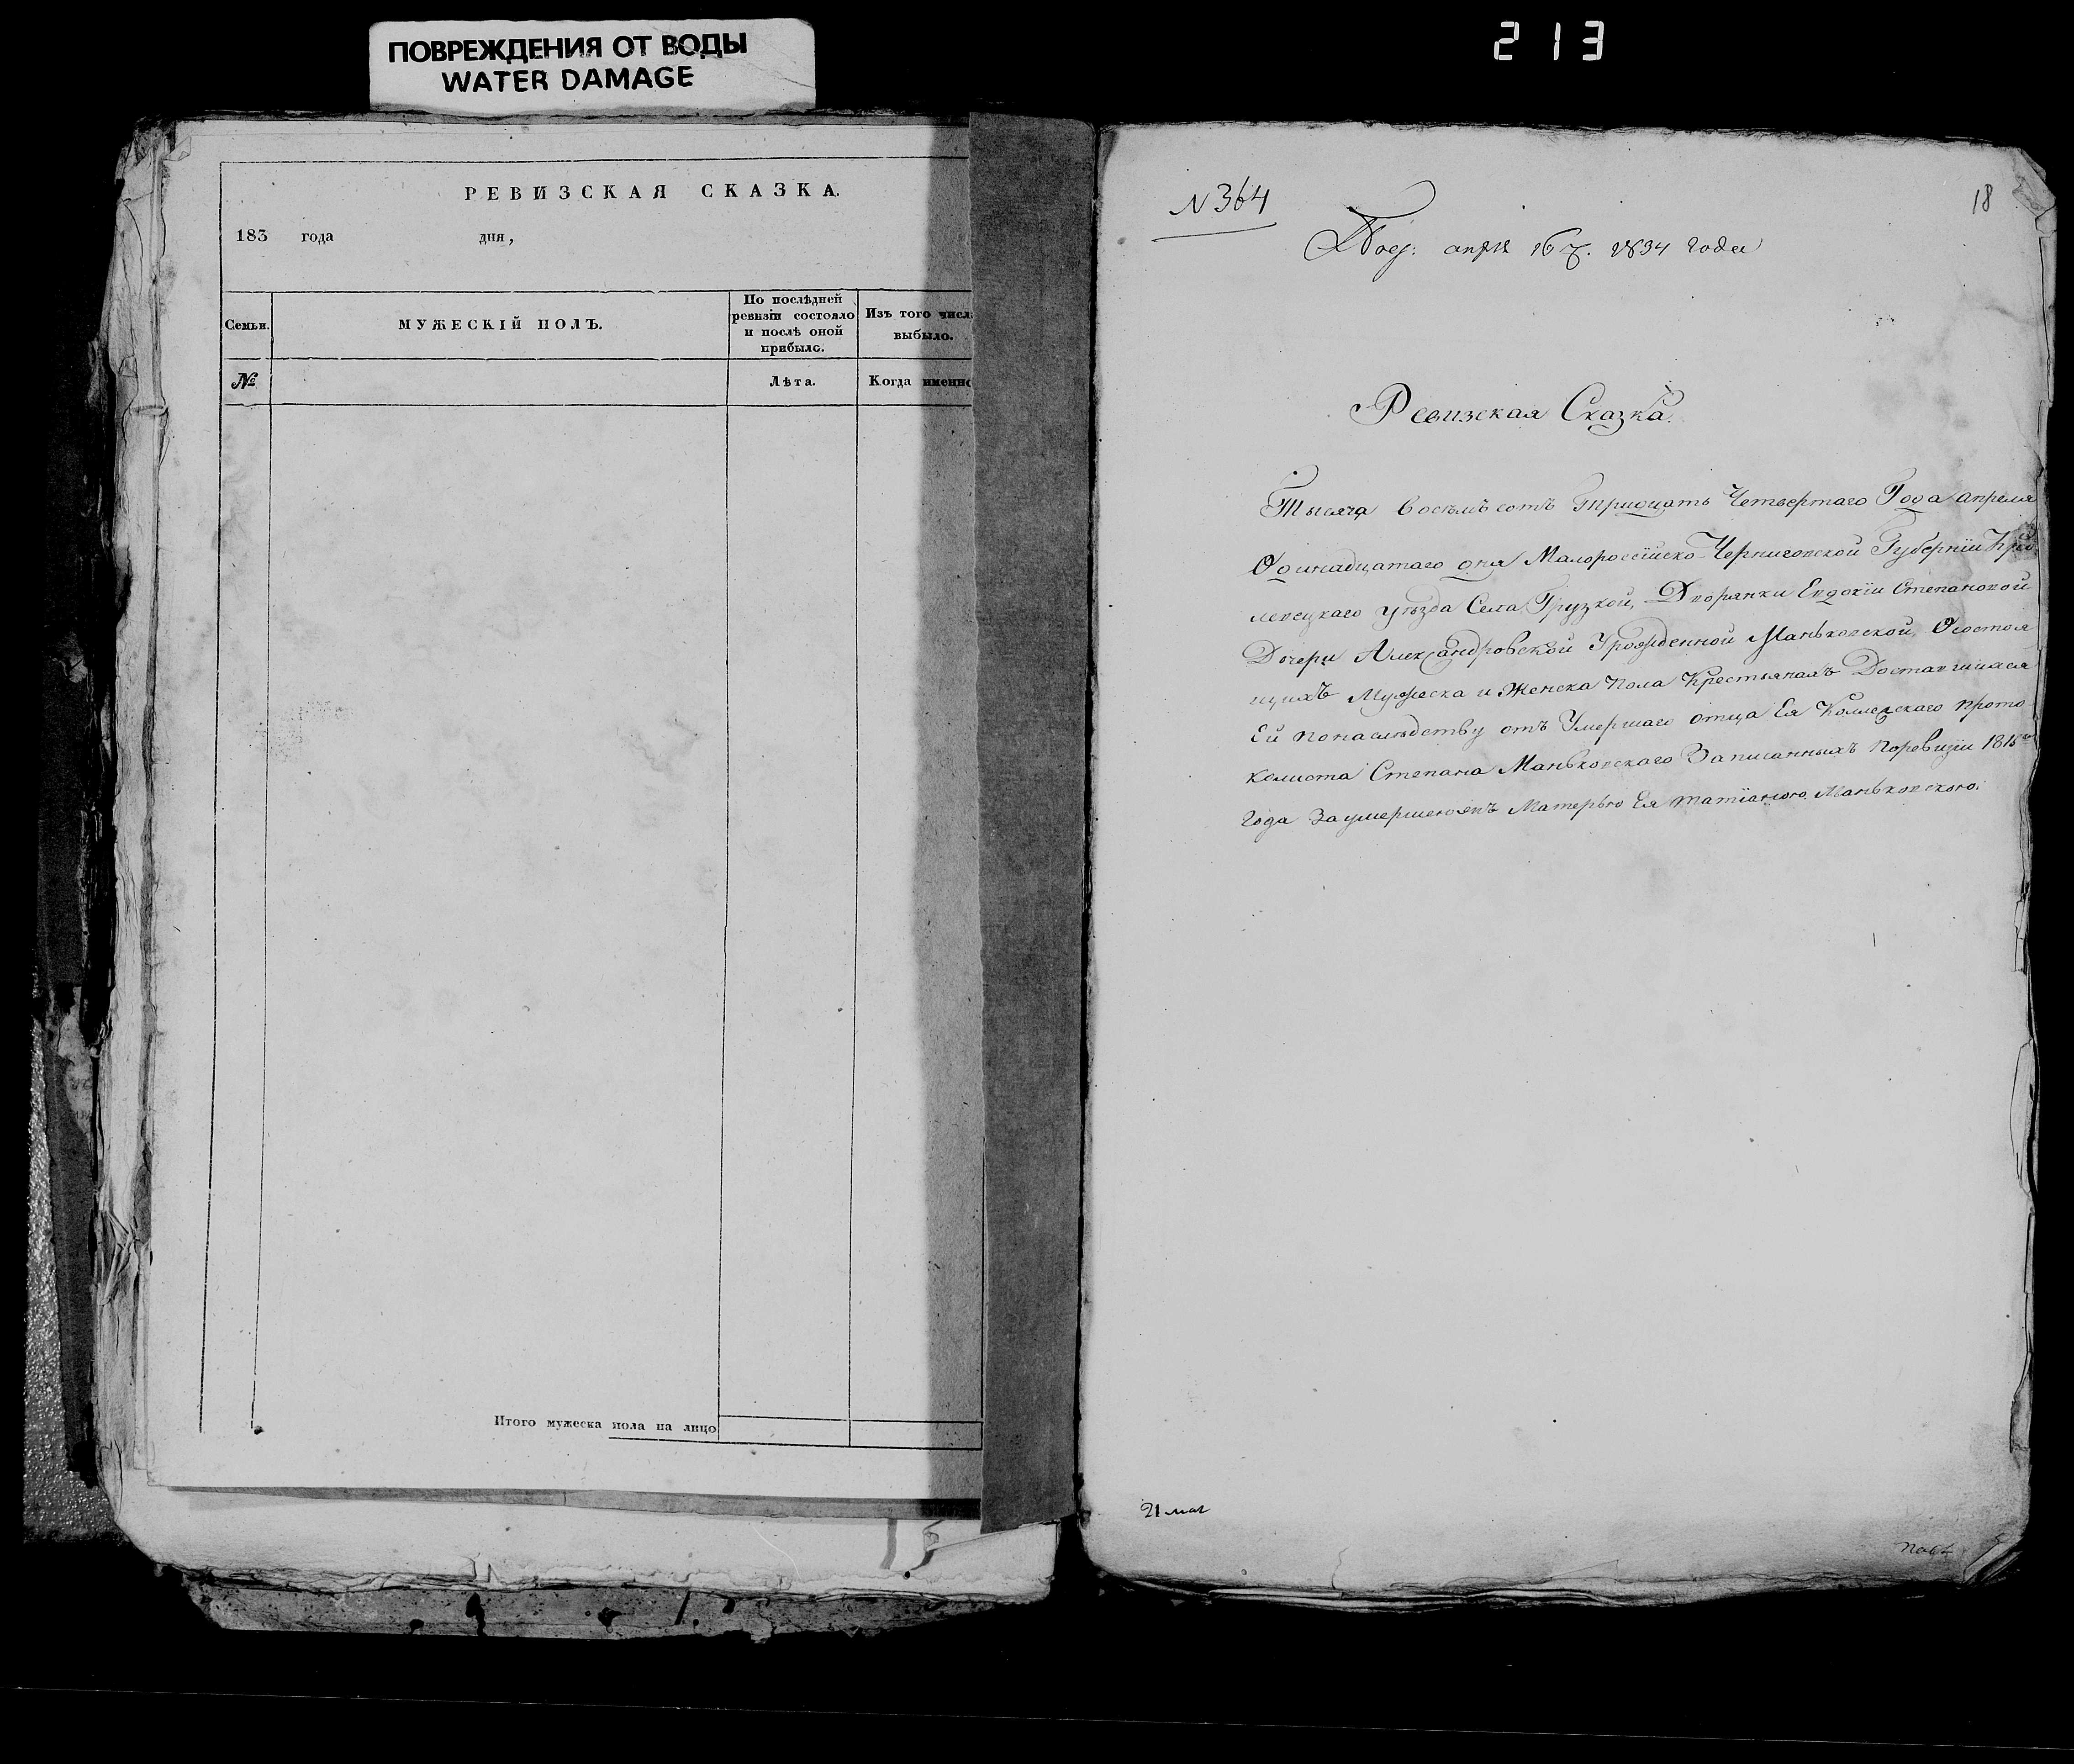 ПОВРЕЖДЕНИЯ ОТ ВОДЫ
WATER DAMAGE
213
РЕВИЗСКАЯ СКАЗКА.
183 года дня,
Семьи.
МУЖЕСКІЙ ПОЛЪ.
По послѣдней
ревизіи состояло
и послѣ оной
прибыло.
Изъ того числа
выбыло.
№
Лѣта.
Когда именно
Итого мужеска пола на лицо
N 364
18
апре 16 1834 года
Ревизская Сказка.
Тысяча восемъ сотъ Тридцать Четвертаго Года апреля
Одинадцатаго дня Малороссійско Черниговской Губерніи Кро
левецкаго уѣзда Села Грузкой, Дворянки Евдокіи Степановой
Дочери Александровской Урожденной Маньковской, О состоя
щихъ Мужеска и Женска пола Крестьянахъ Доставшихся
Ей понаслѣдству отъ Умершаго отца Ея Коллежскаго прото
колиста Степана Маньковскаго Записанныхъ поревизіи 1815го
Года за умершею Матерью Ея Татіаною Маньковскою.
21